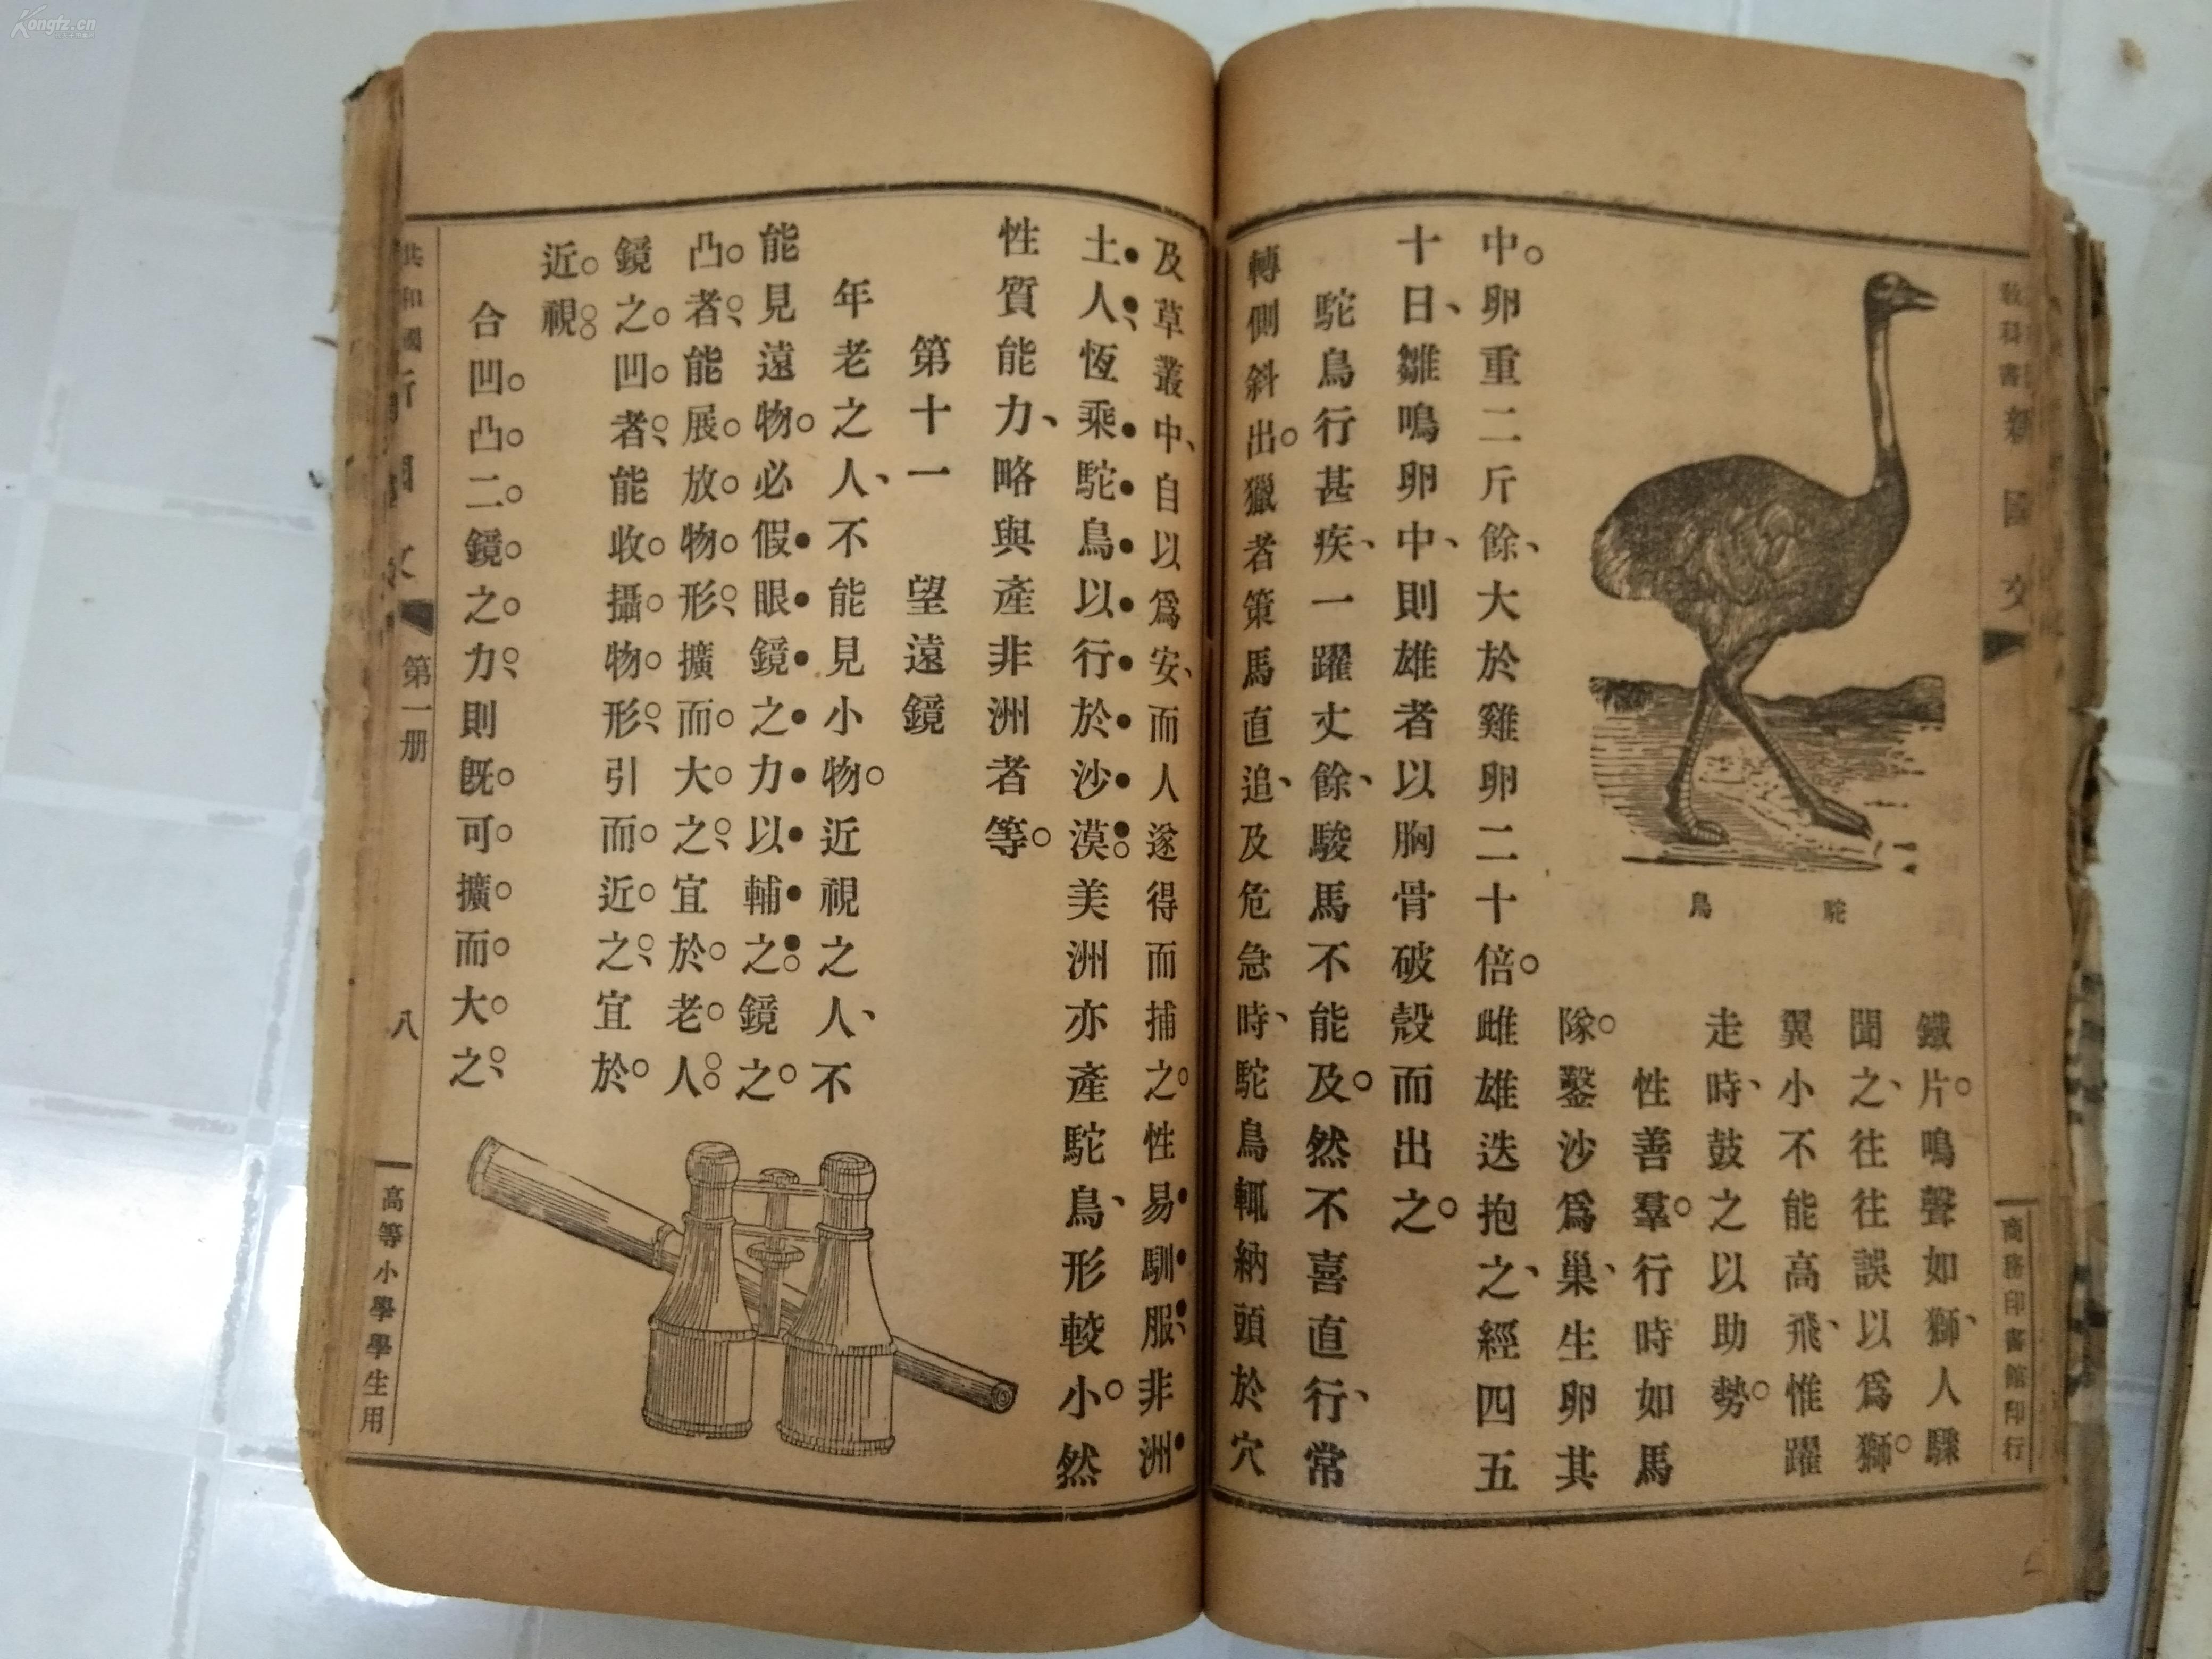 教科書新國文
商務印書館印行
駝鳥
鐵片。鳴聲如獅、人驟
聞之、往往誤以爲獅。
翼小不能高飛、惟躍
走時、鼓之以助勢。
性善羣。行時如馬
隊。鑿沙爲巢、生卵其
中。卵重二斤餘、大於雞卵二十倍。雌雄迭抱之、經四五
十日、雛鳴卵中、則雄者以胸骨破殼而出之。
駝鳥行甚疾、一躍丈餘、駿馬不能及。然不喜直行、常
轉側斜出。獵者策馬直追、及危急時、駝鳥輒納頭於穴
及草叢中、自以爲安、而人遂得而捕之。性易馴服、非洲
土人、恆乘駝鳥以行於沙漠。美洲亦產駝鳥、形較小。然
性質能力、略與產非洲者等。
第十一 望遠鏡
年老之人、不能見小物。近視之人、不
能見遠物。必假眼鏡之力以輔之。鏡之
凸者、能展放物形、擴而大之、宜於老人。
鏡之凹者、能收攝物形、引而近之、宜於
近視。
合凹凸二鏡之力、則既可擴而大之、
共和國
第一册
八
高等小學學生用
Kongfz.cn